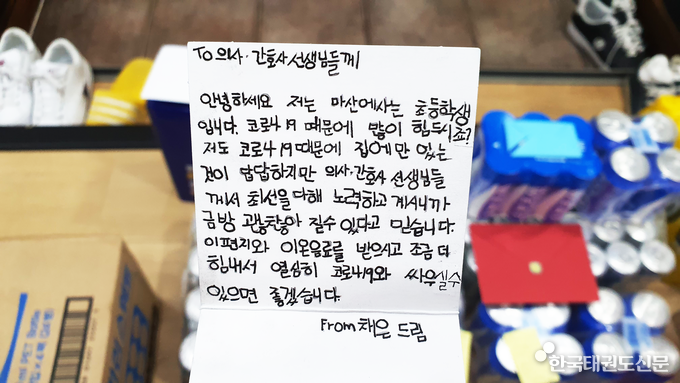 To 의사·간호사 선생님들께
안녕하세요 저는 마산에사는 초등학생
입니다. 코로나19 때문에 많이 힘드시죠?
저도 코로나19 때문에 집에만 있는
것이 답답하지만 의사·간호사 선생님들
께서 최선을 다해 노력하고 계시니까
금방 괜찮아 질수 있다고 믿습니다.
이편지와 이온음료를 받으시고 조금 더
힘내서 열심히 코로나19와 싸우실수
있으면 좋겠습니다.
From 채은 드림
한국태권도신문